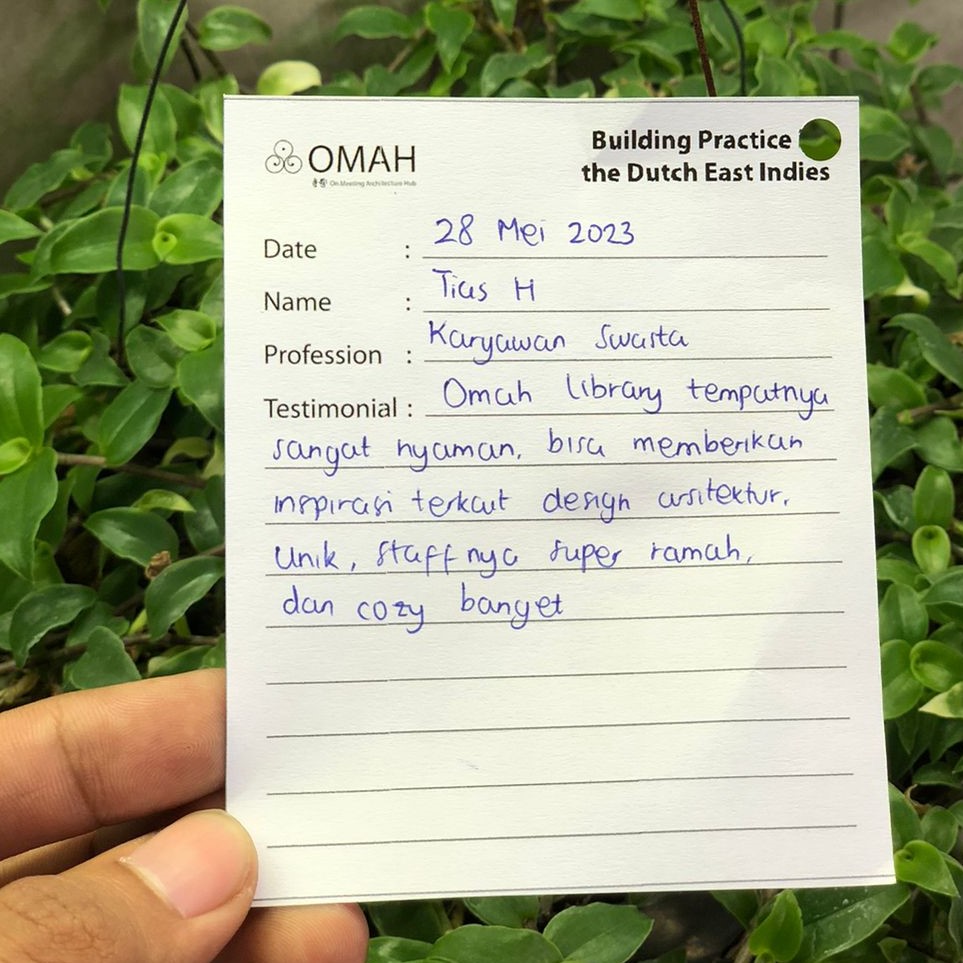 OMAH
On Meeting Architecture Hub
Building Practice
the Dutch East Indies
Date : 28 Mei 2023
Name : Tias H
Profession : Karyawan Swasta
Testimonial : Omah library tempatnya
sangat nyaman, bisa memberikan
inspirasi terkait design arsitektur.
Unik, staff nya super ramah,
dan cozy banget